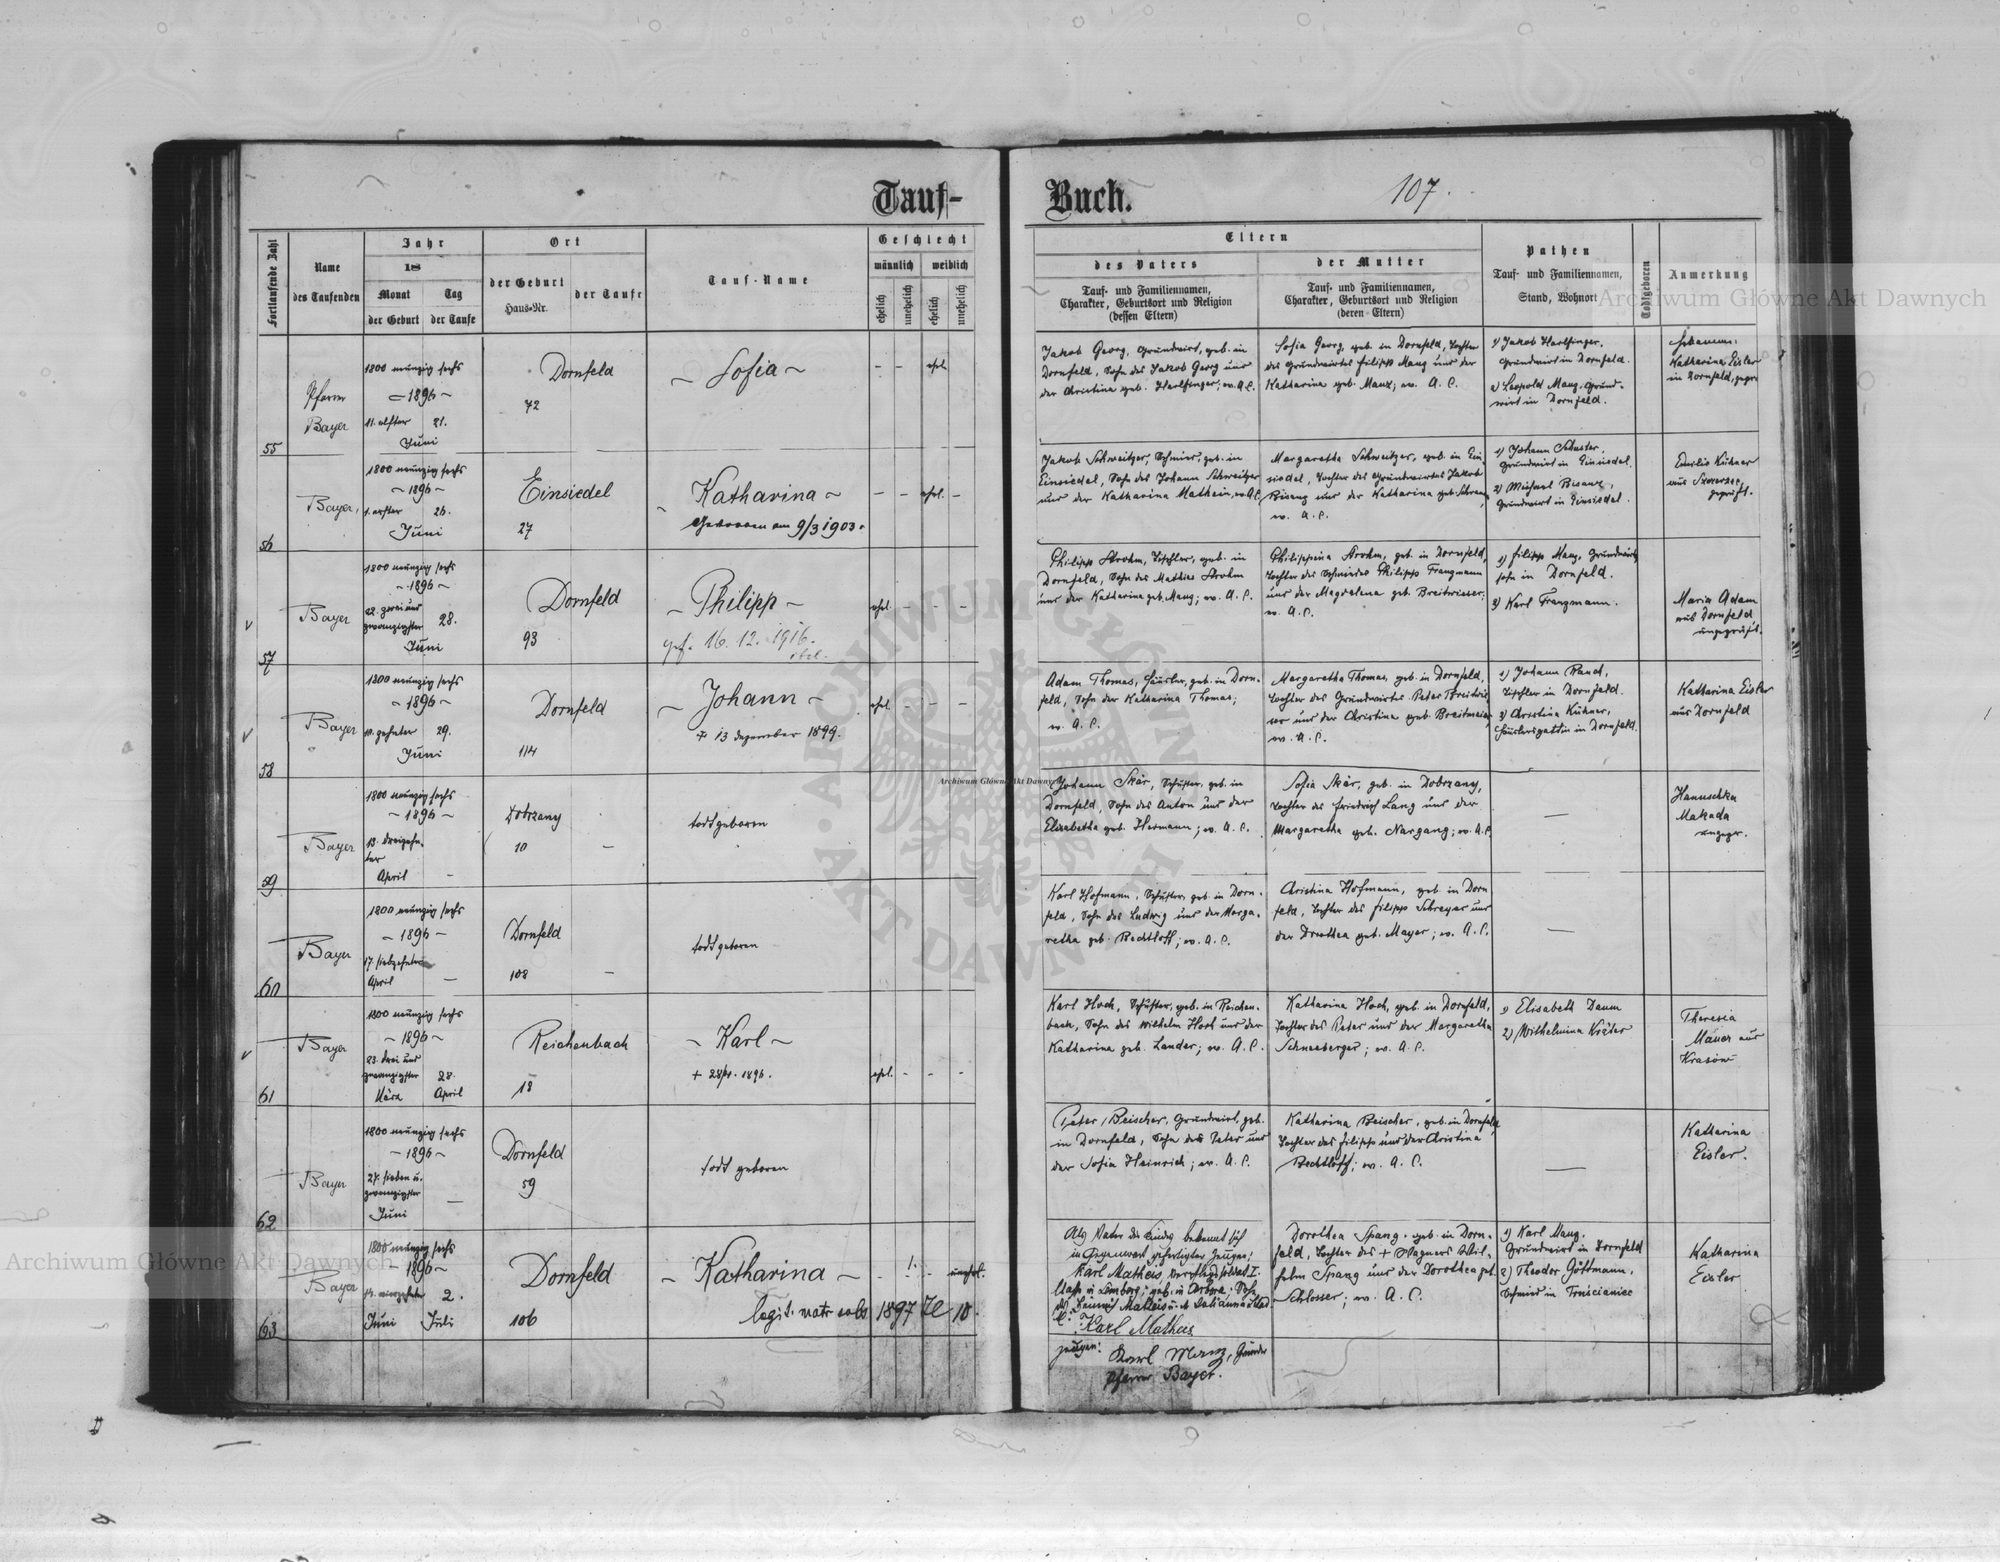 Tauf-
Buch.
107.
Fortlaufende Zahl
Name
des Taufenden
Jahr
18
Monat
der Geburt
Tag
der Taufe
Ort
der Geburt
Haus-Nr.
der Taufe
Tauf-Name
Geschlecht
männlich
weiblich
ehelich
unehelich
ehelich
unehelich
Eltern
des Vaters
Tauf- und Familiennamen,
Charakter, Geburtsort und Religion
(dessen Eltern)
der Mutter
Tauf- und Familiennamen,
Charakter, Geburtsort und Religion
(deren Eltern)
Pathen
Tauf- und Familiennamen,
Stand, Wohnort
Todtgeboren
Anmerkung
55
Pfarrer
Bayer
1800 neunzig sechs
– 1896 –
11. elfter 21.
Juni
Dornfeld
72
– Sofia –
– – ehel.
Jakob Georg, Grundwirt, geb. in
Dornfeld, Sohn des Jakob Georg und
der Christina geb. Harlfinger; ev. A. C.
Sofia Georg, geb. in Dornfeld, Tochter
des Grundwirtes Filipp Manz und der
Katharina geb. Manz; ev. A. C.
1) Jakob Harlfinger,
Grundwirt in Dornfeld.
2) Leopold Manz, Grund-
wirt in Dornfeld.
Hebamme:
Katharina Eisler
in Dornfeld, gepr.
56
Bayer,
1800 neunzig sechs
– 1896 –
1. erster 26.
Juni
Einsiedel
27
Katharina –
am 9/3 1903.
– – ehel. –
Jakob Schweitzer, Schmied, geb. in
Einsiedel, Sohn des Johann Schweitzer
und der Katharina Mathein, ev. A. C.
Margaretha Schweitzer, geb. in Ein-
siedel, Tochter des Grundwirtes Jakob
Bisanz und der Katharina geb.
ev. A. C.
1) Johann Schuster,
Grundwirt in Einsiedel.
2) Michael Bisanz,
Grundwirt in Einsiedel.
Emilie Kühner
aus
geprüft.
57
Bayer
1800 neunzig sechs
– 1896 –
22. zwei und
zwanzigster 28.
Juni
Dornfeld
93
– Philipp –
gef. 16. 12. 1916.
ehel. – – –
Philipp Strohm, Tischler, geb. in
Dornfeld, Sohn des Mathias Strohm
und der Katharina geb. Manz; ev. A. C.
Philippina Strohm, geb. in Dornfeld,
Tochter des Schmiedes Philipp Franzmann
und der Magdalena geb. Breitwieser;
ev. A. C.
1) Filipp Manz, Grundwirts-
sohn in Dornfeld.
2) Karl Franzmann.
Maria Adam
aus Dornfeld
ungeprüft.
58
Bayer
1800 neunzig sechs
– 1896 –
10. zehnter 29.
Juni
Dornfeld
114
– Johann –
+ 13 dezember 1899.
ehel. – – –
Adam Thomas, Häusler, geb. in Dorn-
feld, Sohn der Katharina Thomas;
ev. A. C.
Margaretha Thomas, geb. in Dornfeld,
Tochter des Grundwirtes Peter Breitwie-
ser und der Christina geb. Breitmeier
ev. A. C.
1) Johann Rand,
Tischler in Dornfeld.
2) Christina Kühner,
Häuslersgattin in Dornfeld.
Katharina Eisler
aus Dornfeld
59
Bayer
1800 neunzig sechs
– 1896 –
13. dreizehn-
ter
April –
Dobrzany
10 –
todtgeboren
Johann Skär, Schuster, geb. in
Dornfeld, Sohn des Anton und der
Elisabetha geb. Hermann; ev. A. C.
Sofia Skär, geb. in Dobrzany,
Tochter des Friedrich Lang und der
Margaretha geb. Nargang; ev. A. C.
–
Hanuschka
Makada
ungepr.
60
Bayer
1800 neunzig sechs
– 1896 –
17. siebzehnter
April –
Dornfeld
108 –
todt geboren
Karl Hofmann, Schuster, geb. in Dorn-
feld, Sohn des Ludwig und der Marga-
retha geb. Bechtloff; ev. A. C.
Christina Hofmann, geb. in Dorn
feld, Tochter des Filipp Schreyer und
der Dorothea geb. Mayer; ev. A. C.
–
61
Bayer
1800 neunzig sechs
– 1896 –
23. drei und
zwanzigster 28.
März April
Reichenbach
18
– Karl –
+ 28/4. 1896.
ehel. – – –
Karl Hoch, Schuster, geb. in Reichen-
bach, Sohn des Wilhelm Hoch und der
Katharina geb. Lander; ev. A. C.
Katharina Hoch, geb. in Dornfeld,
Tochter des Peter und der Margaretha
Schneeberger; ev. A. C.
1) Elisabeth Daum
2) Wilhelmina Kräter
Theresia
Mauer aus
Krasów
62
Bayer
1800 neunzig sechs
– 1896 –
27. sieben u.
zwanzigster –
Juni
Dornfeld
59
todt geboren
Peter Beischer, Grundwirt, geb.
in Dornfeld, Sohn des Peter und
der Sofia Heinrich; ev. A. C.
Katharina Beischer, geb. in Dornfeld,
Tochter des Filipp und der Christina
Bechtloff; ev. A. C.
–
Katharina
Eisler.
63
Bayer
1800 neunzig sechs
– 1896 –
14. vierzehnter 2.
Juni Juli
Dornfeld
106
– Katharina –
legit. matr. 1897 10.
unehel.
Als Vater des Kindes bekennt sich
in Gegenwart gefertigter Zeugen:
Karl Matheis,
Klasse in Lemberg, geb. in
Karl Matheis
Zeugen: Karl Manz,
Pfarrer Bayer.
Dorothea Spang, geb. in Dorn-
feld, Tochter des + Wagners Wil-
helm Spang und der Dorothea geb.
Schlosser; ev. A. C.
1) Karl Manz,
Grundwirt in Dornfeld
2) Theodor Göttmann,
Schmied in Trościaniec
Katharina
Eisler
Archiwum Główne Akt Dawnych
Archiwum Główne Akt Dawnych
Archiwum Główne Akt Dawnych
ARCHIWUM GŁÓWNE
AKT DAWNYCH